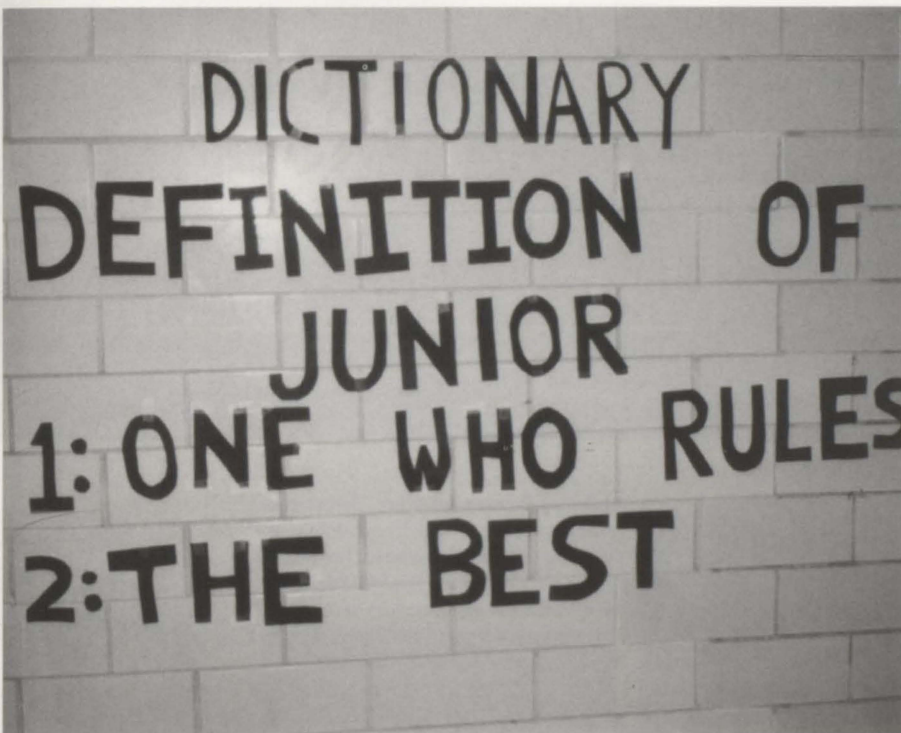 DICTIONARY
DEFINITION OF
JUNIOR
1: ONE WHO RULES
2: THE BEST